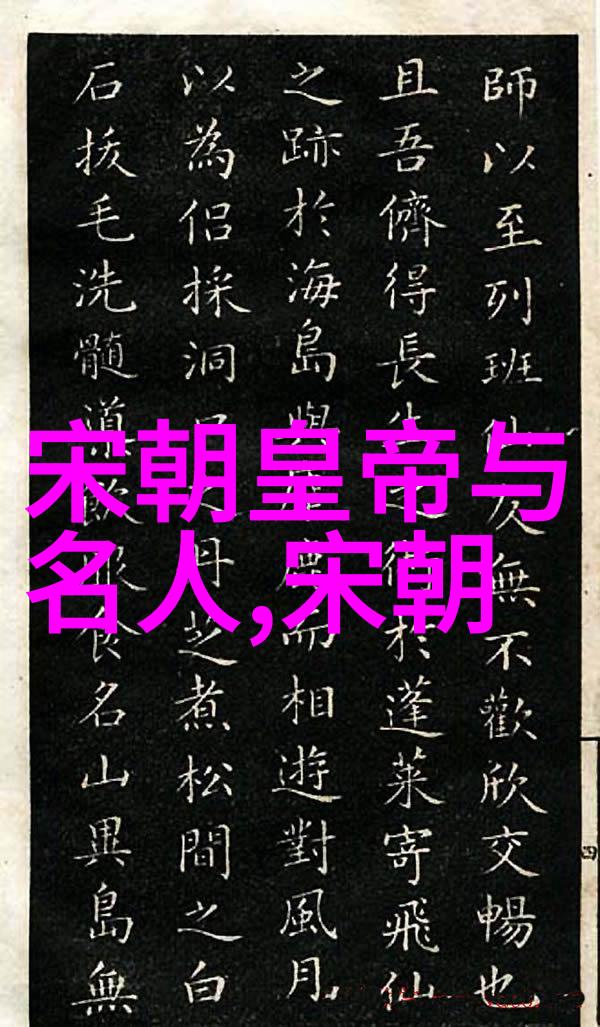 師以至列班仙友無不歡欣交暢也
且吾儕得長生之於蓬萊寄飛仙
之跡於海島與而相遊對風月
以為侶採洞丹芝煮松間之白
石拔毛洗髓飲服食名山異島無
宋朝皇帝与
名人,宋朝
四